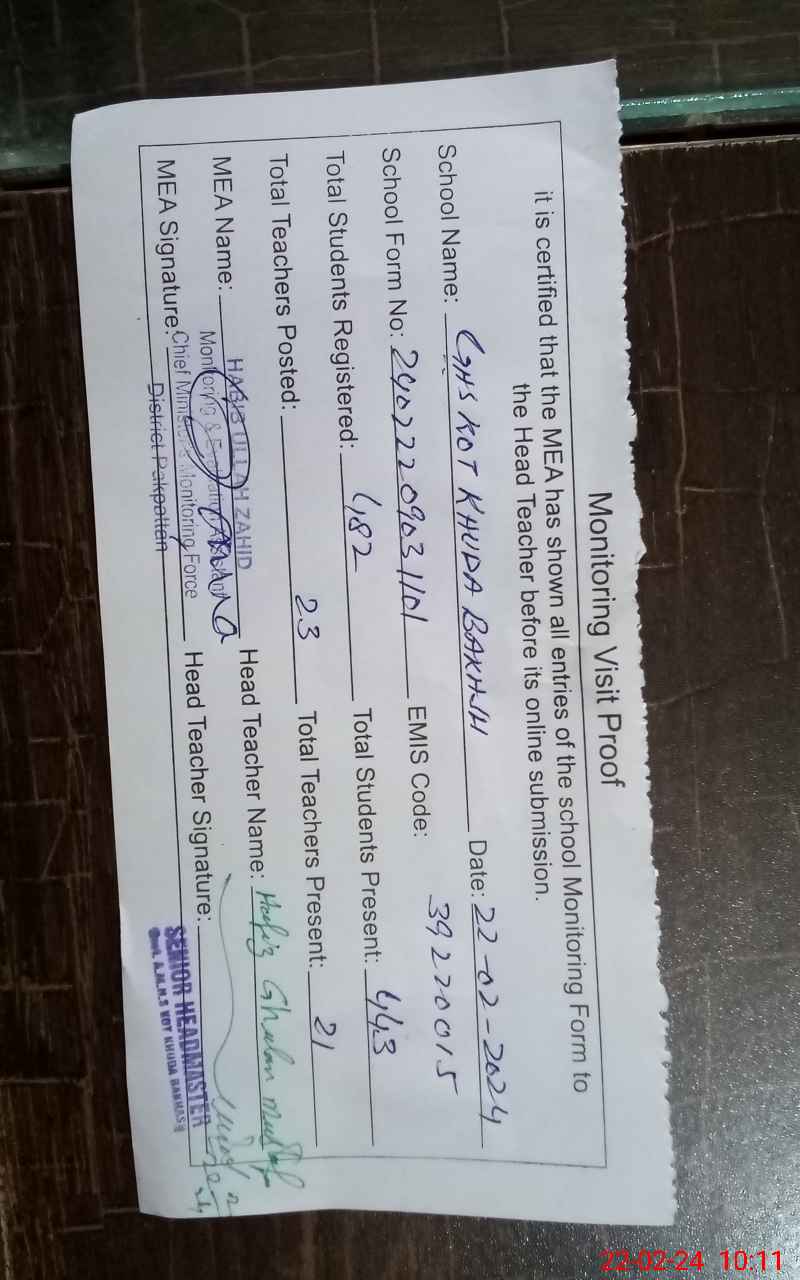 Monitoring Visit Proof
it is certified that the MEA has shown all entries of the school Monitoring Form to
the Head Teacher before its online submission.
School Name: GHS KOT KHUDA BAKHSH Date: 22-02-2024
School Form No: 24022209031101 EMIS Code: 39220015
Total Students Registered: 482 Total Students Present: 443
Total Teachers Posted: 23 Total Teachers Present: 21
MEA Name: HABIB ULLAH ZAHID Head Teacher Name: Hafiz Ghulam
Monitoring &
MEA Signature: Chief Minister's Monitoring Force Head Teacher Signature:
District Pakpattan
SENIOR HEADMASTER
KOT KHUDA BAKHASH
22-02-24 10:11